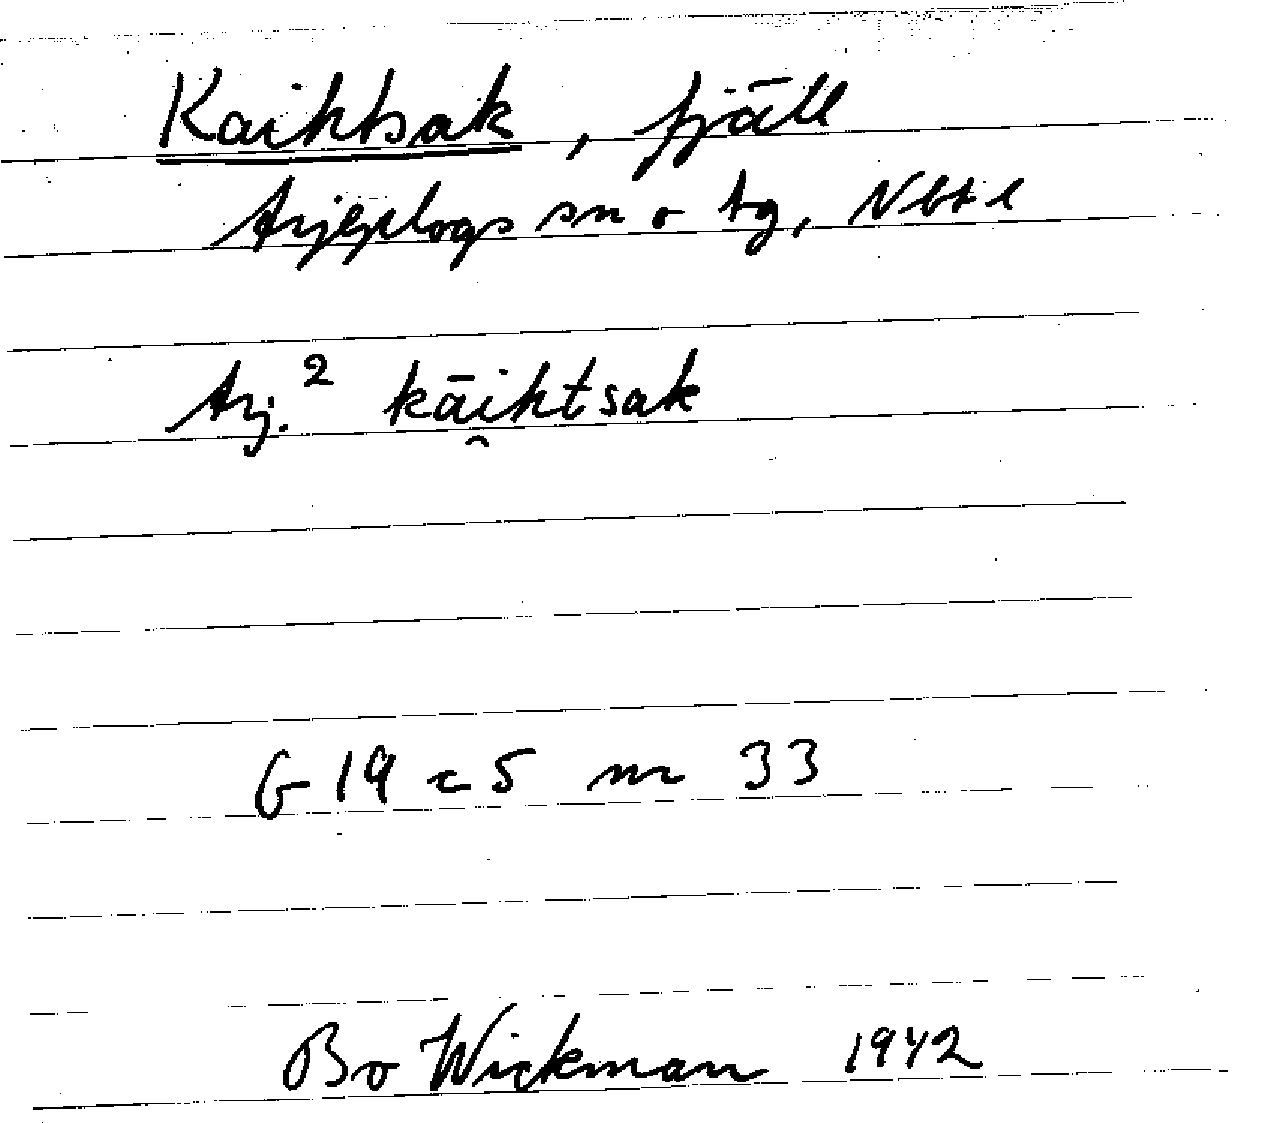 Kaihtsak, fjäll
Arjeplogs sn o tg, Nbt l
Arj.² kāi̯htsak
G 19 c 5 nr 33
Bo Wickman 1942